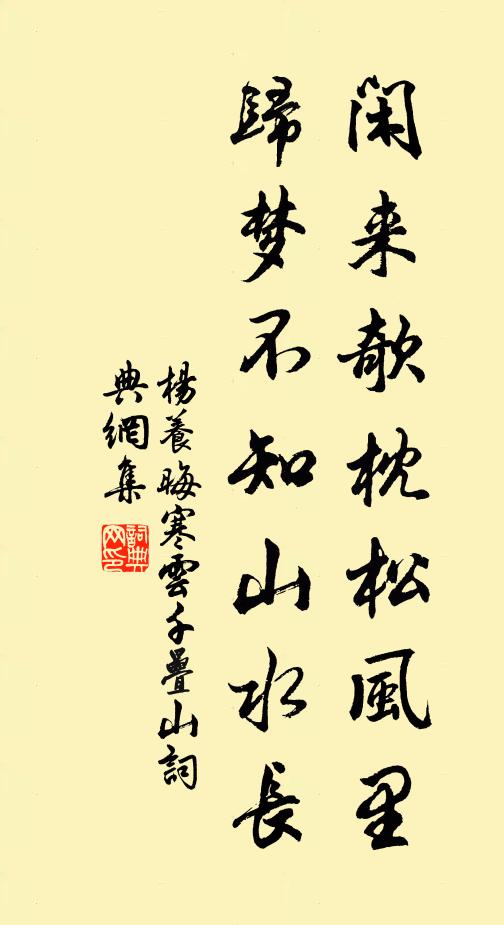 閑来欹枕松風里
歸梦不知山水長
楊養晦寒雲千疊山詞
典網集
詞典
网印